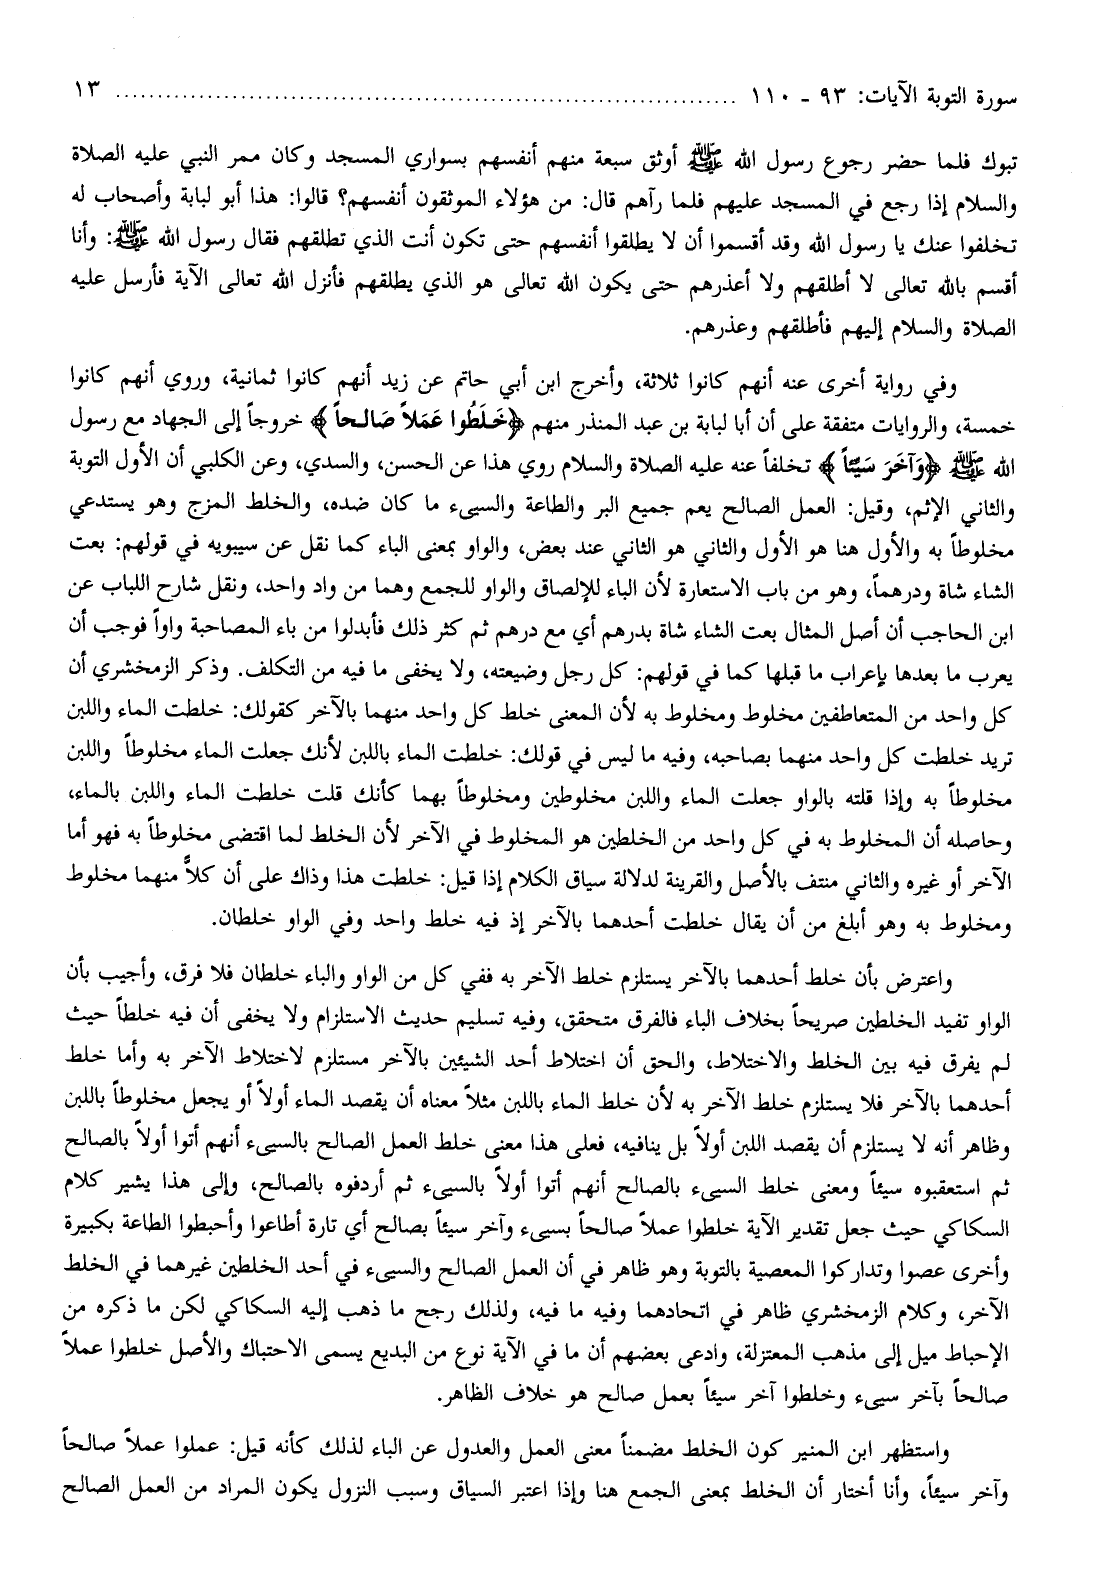 سورة التوبة الآيات: ٩٣ ـ ١١٠ ........................................................................... ١٣
تبوك فلما حضر رجوع رسول الله ﷺ أوثق سبعة منهم أنفسهم بسواري المسجد وكان ممر النبي عليه الصلاة
والسلام إذا رجع في المسجد عليهم فلما رآهم قال: من هؤلاء الموثقون أنفسهم؟ قالوا: هذا أبو لبابة وأصحاب له
تخلفوا عنك يا رسول الله وقد أقسموا أن لا يطلقوا أنفسهم حتى تكون أنت الذي تطلقهم فقال رسول الله ﷺ: وأنا
أقسم بالله تعالى لا أطلقهم ولا أعذرهم حتى يكون الله تعالى هو الذي يطلقهم فأنزل الله تعالى الآية فأرسل عليه
الصلاة والسلام إليهم فأطلقهم وعذرهم.
وفي رواية أخرى عنه أنهم كانوا ثلاثة، وأخرج ابن أبي حاتم عن زيد أنهم كانوا ثمانية، وروي أنهم كانوا
خمسة، والروايات متفقة على أن أبا لبابة بن عبد المنذر منهم ﴿خَلَطُوا عَمَلاً صَالحاً﴾ خروجاً إلى الجهاد مع رسول
الله ﷺ ﴿وَآخَرَ سَيِّئاً﴾ تخلفاً عنه عليه الصلاة والسلام روي هذا عن الحسن، والسدي، وعن الكلبي أن الأول التوبة
والثاني الإثم، وقيل: العمل الصالح يعم جميع البر والطاعة والسيىء ما كان ضده، والخلط المزج وهو يستدعي
مخلوطاً به والأول هنا هو الأول والثاني هو الثاني عند بعض، والواو بمعنى الباء كما نقل عن سيبويه في قولهم: بعت
الشاء شاة ودرهماً، وهو من باب الاستعارة لأن الباء للإلصاق والواو للجمع وهما من واد واحد، ونقل شارح اللباب عن
ابن الحاجب أن أصل المثال بعت الشاء شاة بدرهم أي مع درهم ثم كثر ذلك فأبدلوا من باء المصاحبة واواً فوجب أن
يعرب ما بعدها بإعراب ما قبلها كما في قولهم: كل رجل وضيعته، ولا يخفى ما فيه من التكلف. وذكر الزمخشري أن
كل واحد من المتعاطفين مخلوط ومخلوط به لأن المعنى خلط كل واحد منهما بالآخر كقولك: خلطت الماء واللبن
تريد خلطت كل واحد منهما بصاحبه، وفيه ما ليس في قولك: خلطت الماء باللبن لأنك جعلت الماء مخلوطاً واللبن
مخلوطاً به وإذا قلته بالواو جعلت الماء واللبن مخلوطين ومخلوطاً بهما كأنك قلت خلطت الماء واللبن بالماء،
وحاصله أن المخلوط به في كل واحد من الخلطين هو المخلوط في الآخر لأن الخلط لما اقتضى مخلوطاً به فهو أما
الآخر أو غيره والثاني منتف بالأصل والقرينة لدلالة سياق الكلام إذا قيل: خلطت هذا وذاك على أن كلاًّ منهما مخلوط
ومخلوط به وهو أبلغ من أن يقال خلطت أحدهما بالآخر إذ فيه خلط واحد وفي الواو خلطان.
واعترض بأن خلط أحدهما بالآخر يستلزم خلط الآخر به ففي كل من الواو والباء خلطان فلا فرق، وأجيب بأن
الواو تفيد الخلطين صريحاً بخلاف الباء فالفرق متحقق، وفيه تسليم حديث الاستلزام ولا يخفى أن فيه خلطاً حيث
لم يفرق فيه بين الخلط والاختلاط، والحق أن اختلاط أحد الشيئين بالآخر مستلزم لاختلاط الآخر به وأما خلط
أحدهما بالآخر فلا يستلزم خلط الآخر به لأن خلط الماء باللبن مثلاً معناه أن يقصد الماء أولاً أو يجعل مخلوطاً باللبن
وظاهر أنه لا يستلزم أن يقصد اللبن أولاً بل ينافيه، فعلى هذا معنى خلط العمل الصالح بالسيىء أنهم أتوا أولاً بالصالح
ثم استعقبوه سيئاً ومعنى خلط السيىء بالصالح أنهم أتوا أولاً بالسيىء ثم أردفوه بالصالح، وإلى هذا يشير كلام
السكاكي حيث جعل تقدير الآية خلطوا عملاً صالحاً بسيىء وآخر سيئاً بصالح أي تارة أطاعوا وأحبطوا الطاعة بكبيرة
وأخرى عصوا وتداركوا المعصية بالتوبة وهو ظاهر في أن العمل الصالح والسيىء في أحد الخلطين غيرهما في الخلط
الآخر، وكلام الزمخشري ظاهر في اتحادهما وفيه ما فيه، ولذلك رجح ما ذهب إليه السكاكي لكن ما ذكره من
الإحباط ميل إلى مذهب المعتزلة، وادعى بعضهم أن ما في الآية نوع من البديع يسمى الاحتباك والأصل خلطوا عملاً
صالحاً بآخر سيىء وخلطوا آخر سيئاً بعمل صالح هو خلاف الظاهر.
واستظهر ابن المنير كون الخلط مضمناً معنى العمل والعدول عن الباء لذلك كأنه قيل: عملوا عملاً صالحاً
وآخر سيئاً، وأنا أختار أن الخلط بمعنى الجمع هنا وإذا اعتبر السياق وسبب النزول يكون المراد من العمل الصالح